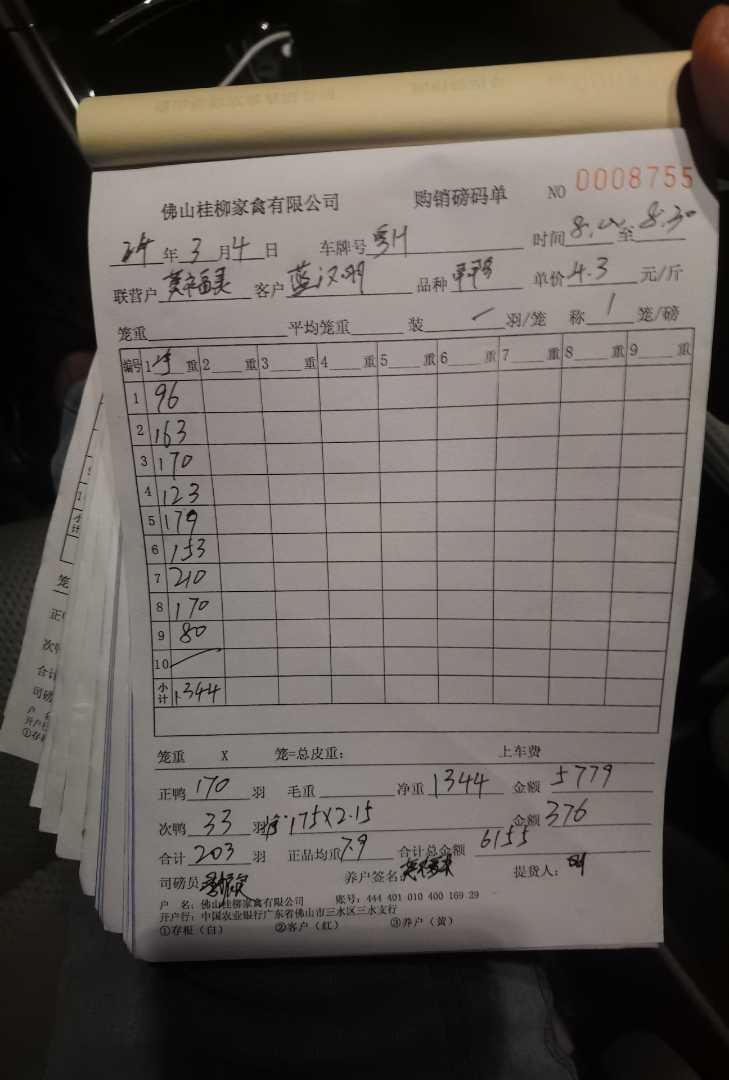 佛山桂柳家禽有限公司 购销磅码单 NO 0008755
24 年 3 月 4 日 车牌号 时间 至 8.30
联营户 客户 蓝汉明 品种 单价 4.3 元/斤
笼重 平均笼重 装 一 羽/笼 称 1 笼/磅
编号 1 净 重 2 重 3 重 4 重 5 重 6 重 7 重 8 重 9 重
1 96
2 163
3 170
4 123
5 179
6 153
7 210
8 170
9 80
10
小计 1344
笼重 X 笼=总皮重: 上车费
正鸭 170 羽 毛重 净重 1344 金额 5779
次鸭 33 羽 175X2.15 金额 376
合计 203 羽 正品均重 7.9 合计总金额 6155
司磅员 养户签名: 提货人:
户 名: 佛山桂柳家禽有限公司 账号: 444 401 010 400 169 29
开户行: 中国农业银行广东省佛山市三水区三水支行
①存根(白) ②客户(红) ③养户(黄)